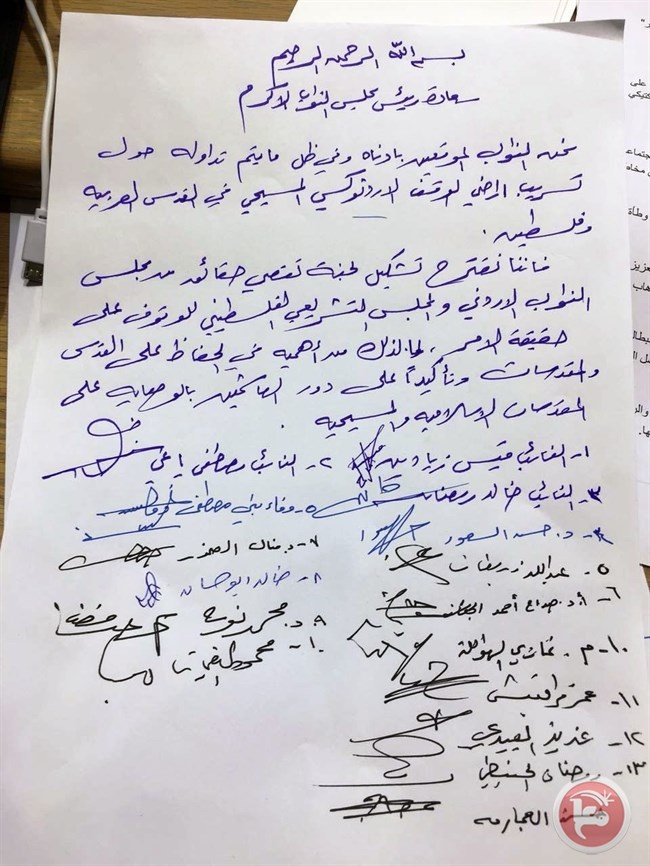 بسم الله الرحمن الرحيم
سعادة رئيس مجلس النواب الاكرم
نحن النواب الموقعين بادناه وفي ظل ما يتم تداوله حول
تسريب اراضي الوقف الارثوذكسي المسيحي في القدس العربيه
وفلسطين .
فاننا نقترح تشكيل لجنة تقصي حقائق من مجلس
النواب الاردني والمجلس التشريعي الفلسطيني للوقوف على
حقيقة الامر ، لما لذلك من أهميه في الحفاظ على القدس
والمقدسات وتأكيداً على دور الهاشميين بالوصايه على
المقدسات الاسلاميه والمسيحيه .
١- النائب قيس زيادين ٢- النائب مصطفى ياغي
٣- النائب خالد رمضان ٥- وفاء بني مصطفى
٤- د. حسن السعود ٧- د. منال الضمور
٥- عبدالله زريقات ٨- خالد ابو حسان
٦- أ.د. صداح أحمد ٩- د. محمد نوح
١٠- م. غازي الهواملة ١٠- محمود
١١- عمر قراقيش
١٢- عزيز العبيدي
١٣- رمضان الحنيطي
حسن العجارمه